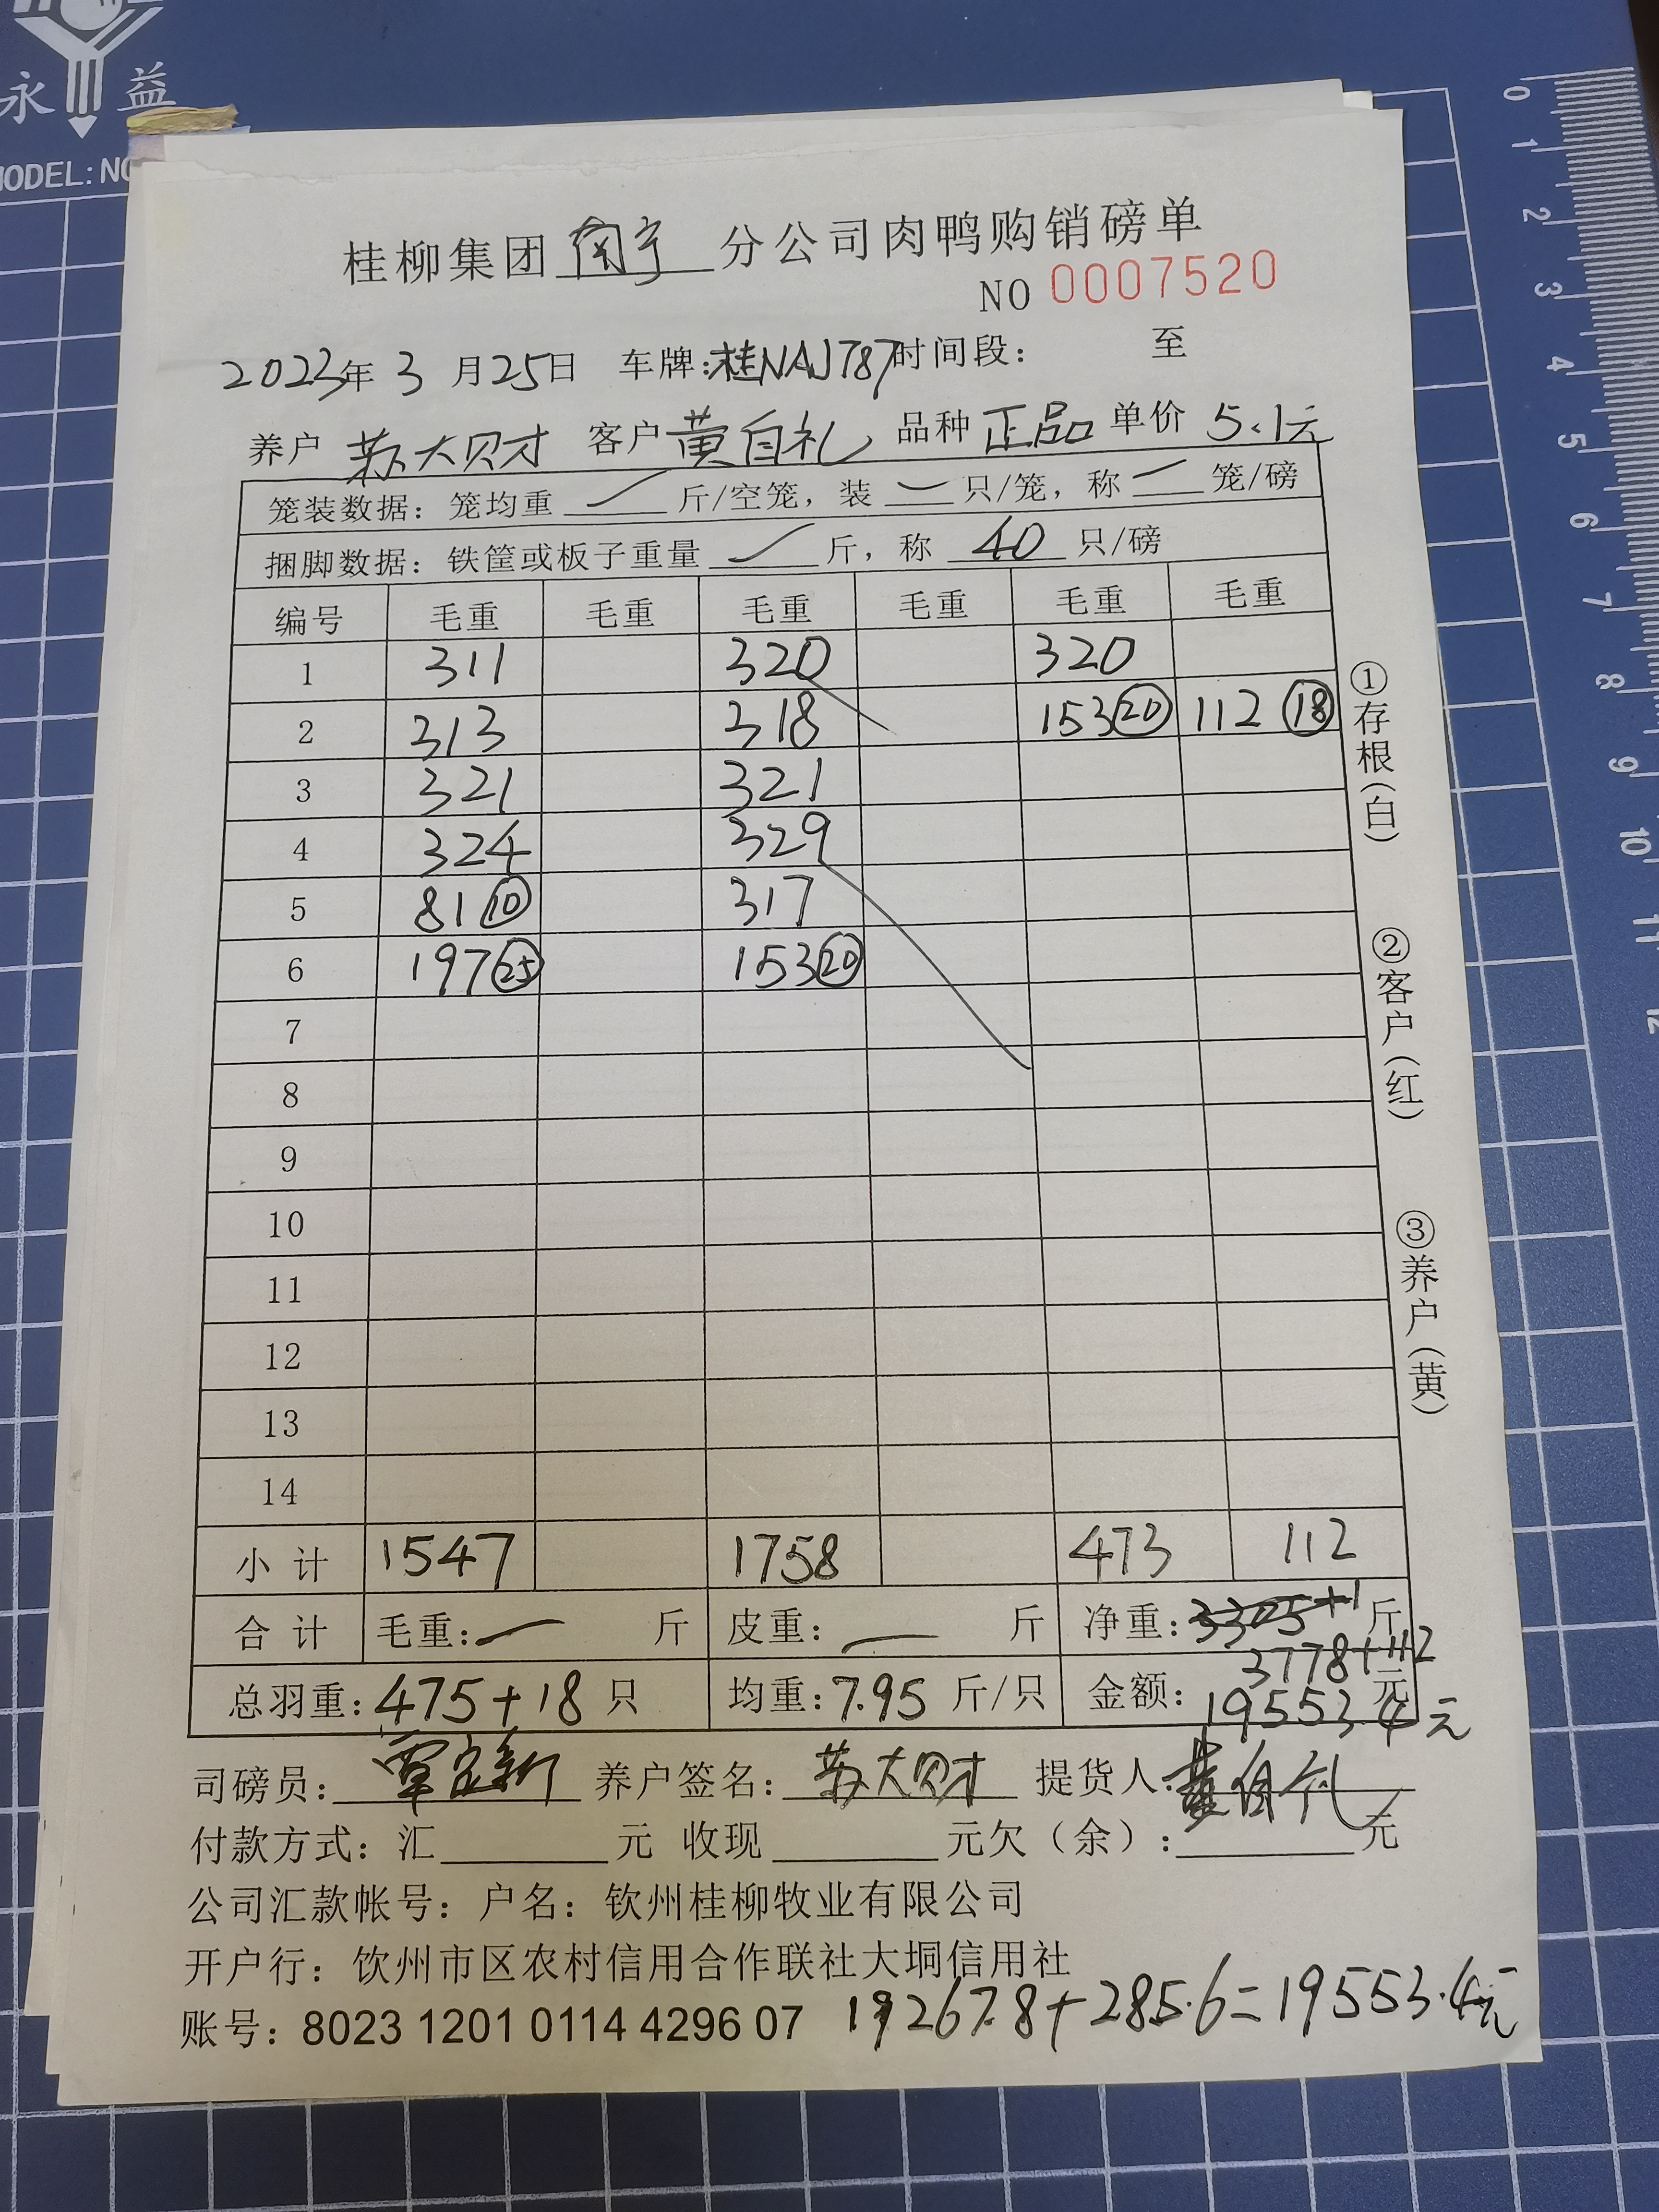 永 益
MODEL:NO
桂柳集团 南宁 分公司肉鸭购销磅单
NO 0007520
2023年 3 月25日 车牌:桂NAJ787 时间段: 至
养户 苏大财 客户 黄自礼 品种 正品 单价 5.1元
笼装数据: 笼均重 斤/空笼, 装 只/笼, 称 笼/磅
捆脚数据: 铁筐或板子重量 斤, 称 40 只/磅
编号 毛重 毛重 毛重 毛重 毛重 毛重
1 311 320 320
2 313 318 153⑳ 112⑱
3 321 321
4 324 329
5 81⑩ 317
6 197㉕ 153⑳
7
8
9
10
11
12
13
14
小计 1547 1758 473 112
合计 毛重: 斤 皮重: 斤 净重: 斤
3778+112
总羽重: 475+18 只 均重: 7.95 斤/只 金额: 19553.4元 元
司磅员: 养户签名: 苏大财 提货人: 黄自礼
付款方式: 汇 元 收现 元欠(余): 元
公司汇款帐号: 户名: 钦州桂柳牧业有限公司
开户行: 饮州市区农村信用合作联社大垌信用社
账号: 8023 1201 0114 4296 07 19267.8+285.6=19553.4元
①存根(白)
②客户(红)
③养户(黄)
0
1
2
3
4
5
6
7
8
9
10
11
12